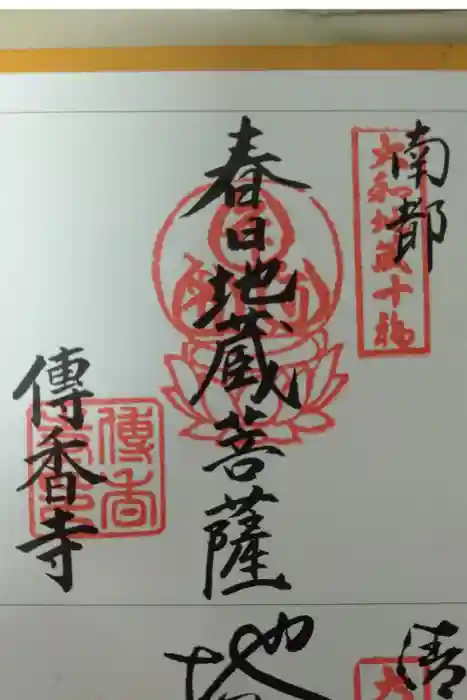 南都
大和地蔵十福
春日地蔵菩薩
傳香寺
傳香
清
地